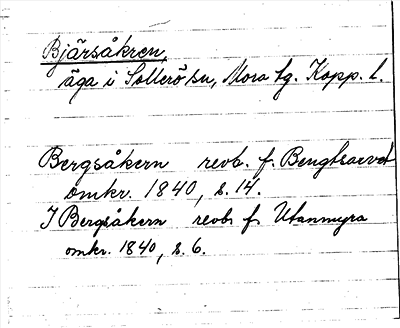 Bjärsåkren,
äga i Sollerö sn, Mora tg. Kopp. l.
Bergsåkern revb. f. Bengtsarvet
omkr. 1840, s. 14.
I Bergsåkern revb f Utanmyra
omkr. 1840, s. 6.